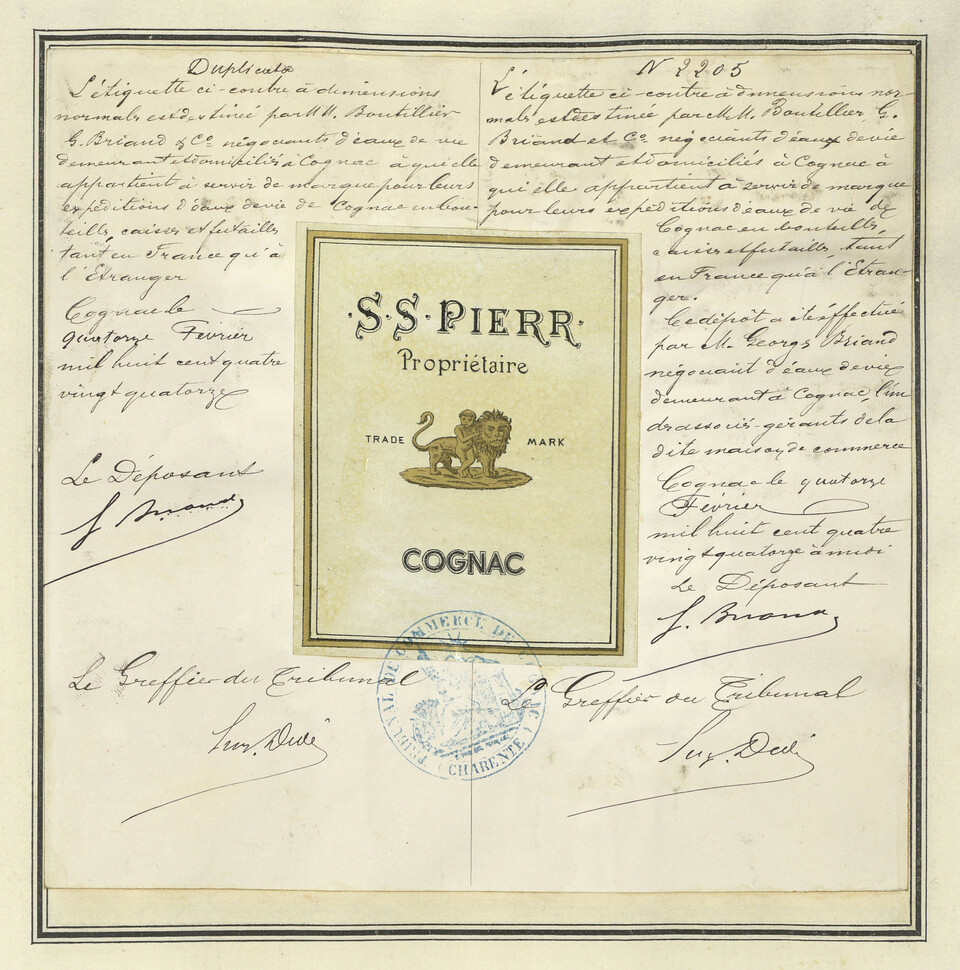 Duplicata
L'étiquette ci-contre à dimensions
normales est destinée par MM. Boutillier
G. Briand & Co. négociants d'eaux de vie
demeurant et domiciliés à Cognac à qui elle
appartient à servir de marque pour leurs
expéditions d'eaux de vie de Cognac en bou-
teilles, caisses et futailles
tant en France qu'à
l'Etranger
Cognac le
quatorze Février
mil huit cent quatre
vingt quatorze
Le Déposant
G. Briand
Le Greffier du Tribunal
N 2205
L'étiquette ci-contre à dimensions nor-
males est destinée par M.M. Boutillier G.
Briand et Co. négociants d'eaux de vie
demeurant et domiciliés à Cognac à
qui elle appartient à servir de marque
pour leurs expéditions d'eaux de vie de
Cognac en bouteilles,
caisses et futailles, tant
en France qu'à l'Etran-
ger.
Ce dépôt a été effectué
par M. Georges Briand
négociant d'eaux de vie
demeurant à Cognac, l'un
des associés-gérants de la
dite maison de commerce
Cognac le quatorze
Février
mil huit cent quatre
vingt quatorze à midi
Le Déposant
G. Briand
Le Greffier du Tribunal
·S·S·PIERR·
Propriétaire
TRADE MARK
COGNAC
TRIBUNAL DE COMMERCE DE COGNAC
(CHARENTE)